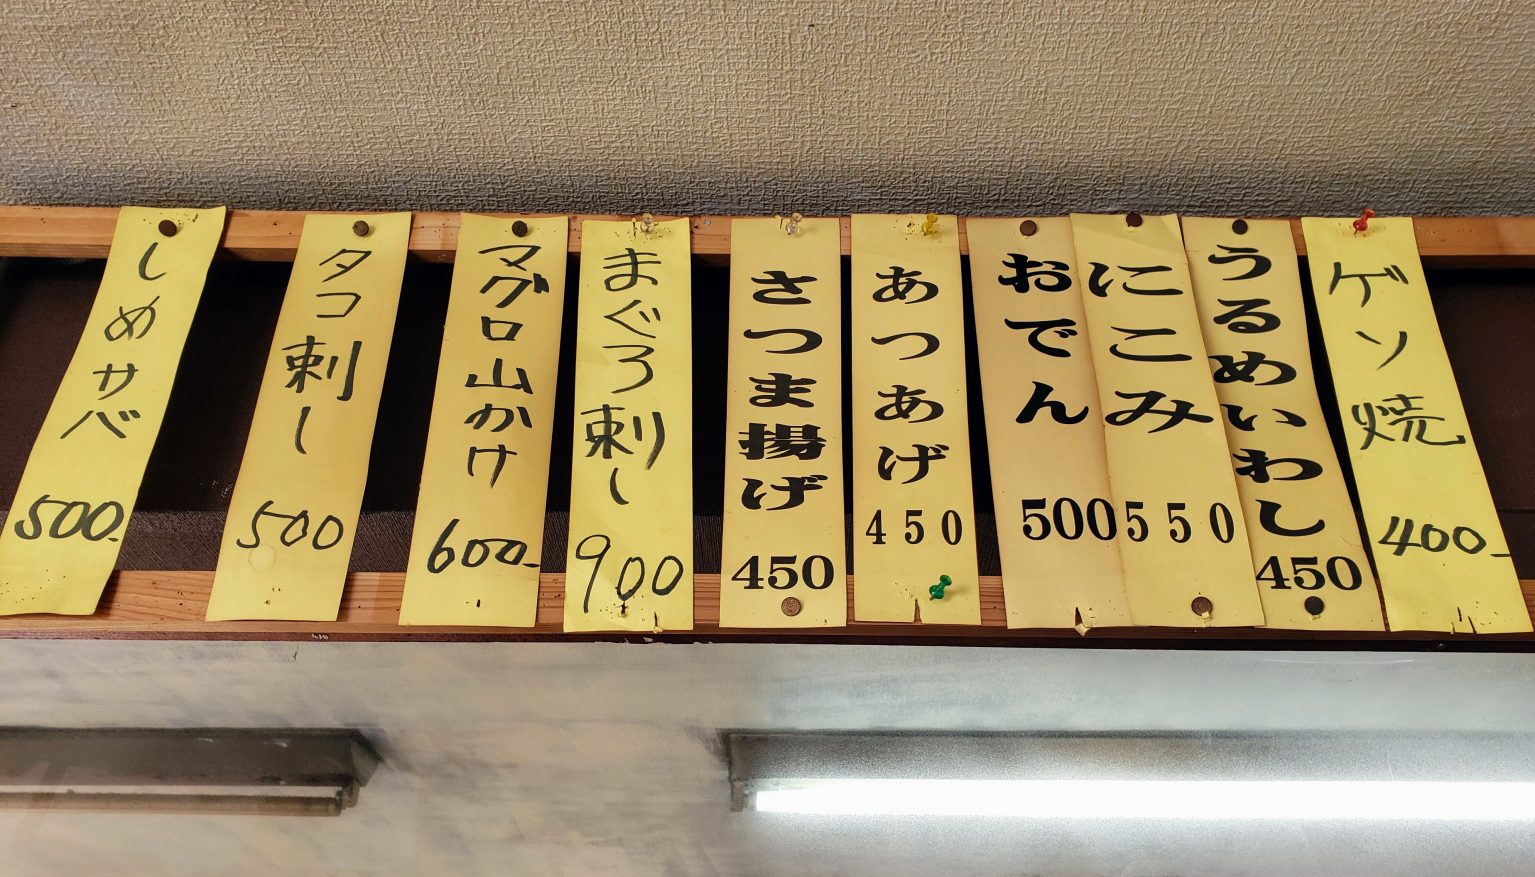 しめサバ
500.
タコ刺し
500
マグロ山かけ
600.-
まぐろ刺し
900
さつま揚げ
450
あつあげ
450
おでん
500
にこみ
550
うるめいわし
450
ゲソ焼
400.-